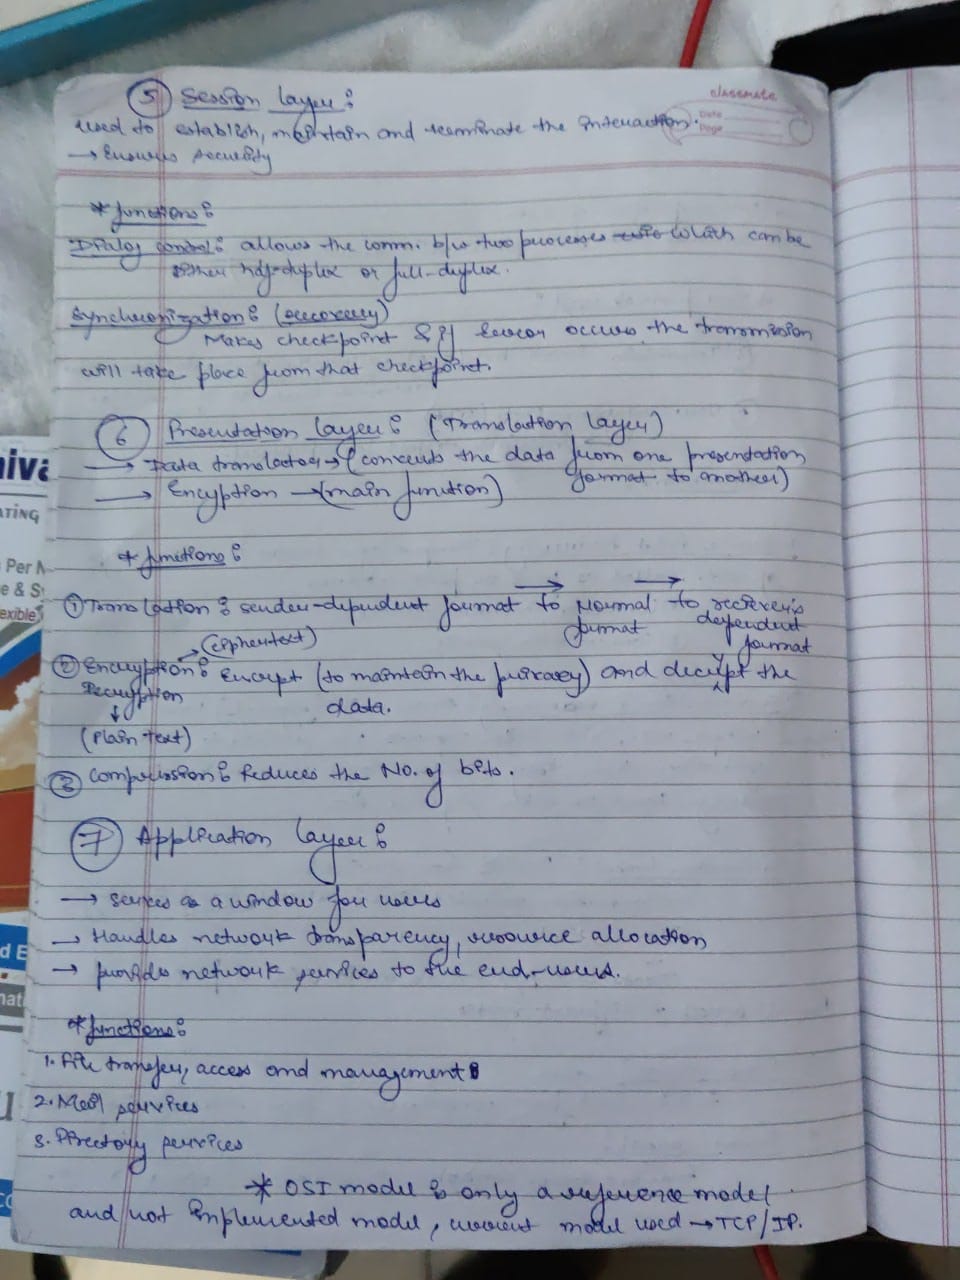 classmate
Date
Page
5 Session layer:
used to establish, maintain and terminate the interaction.
→ Ensures security
* functions:
Dialog control: allows the comm. b/w two processes which can be
either half-duplex or full-duplex.
Synchronization: (recovery)
Makes checkpoint & if error occurs the transmission
will take place from that checkpoint.
6 Presentation layer: (Translation layer)
→ Data translator → (converts the data from one presentation
format to another)
→ Encyption → (main function)
* functions:
① Translation: sender-dependent format to normal to receiver's
format dependent
format
→ (ciphertext)
② Encryption: Encrypt (to maintain the privacy) and decrypt the
Decryption data.
↓
(Plain text)
③ Compression: Reduces the No. of bits.
7 Application layer:
→ serves as a window for users
→ Handles network transparency, resource allocation
→ provides network services to the end-users.
* functions:
1. File transfer, access and management:
2. Mail services
3. Directory services
* OSI model is only a reference model
and not implemented model, current model used → TCP/IP.
ATING
Per
e & S
exible
d E